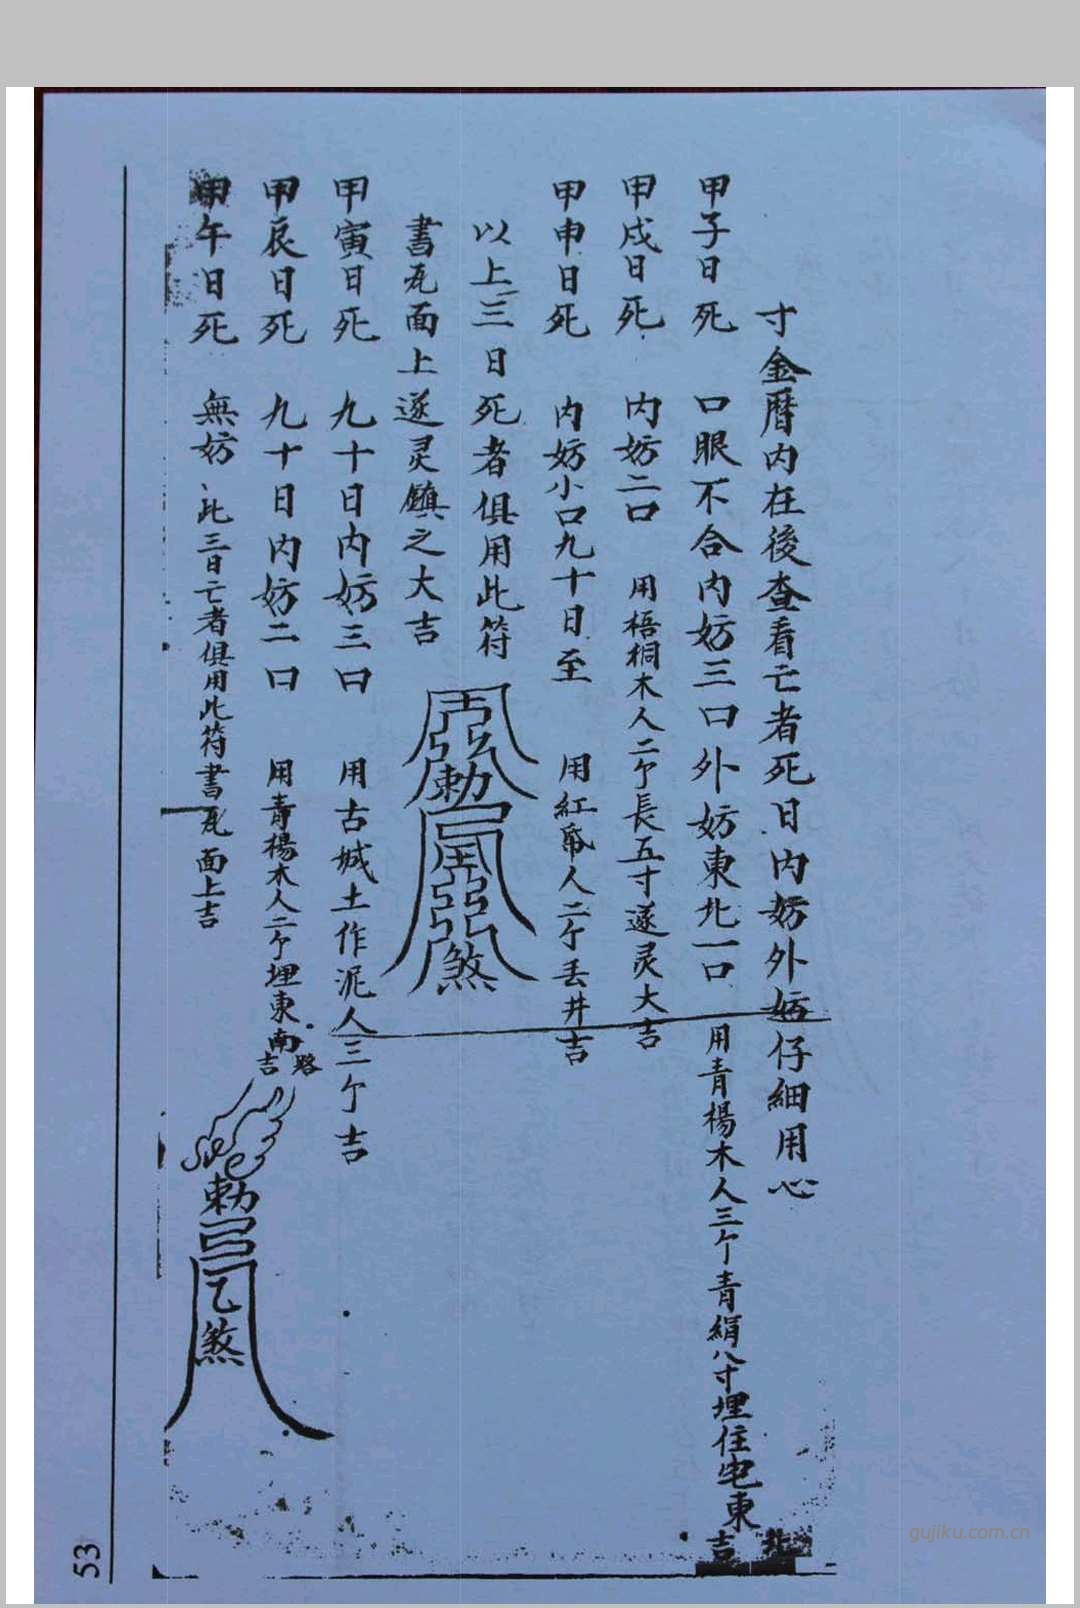 寸金曆内在後查看亡者死日内妨外妨仔細用心
甲子日死 口眼不合内妨三口外妨東北一口 用青楊木人三个青絹八寸埋住宅東北吉
甲戌日死 内妨二口 用梧桐木人二个長五寸遂灵大吉
甲申日死 内妨小口九十日至 用紅帋人二个丢井吉
以上三日死者俱用此符
書瓦面上遂灵鎮之大吉
勅
煞
甲寅日死 九十日内妨三口 用古城土作泥人三个吉
甲辰日死 九十日内妨二口 用青楊木人二个埋東南路吉
甲午日死 無妨 此三日亡者俱用此符書瓦面上吉
勅
乙
煞
53
gujiku.com.cn